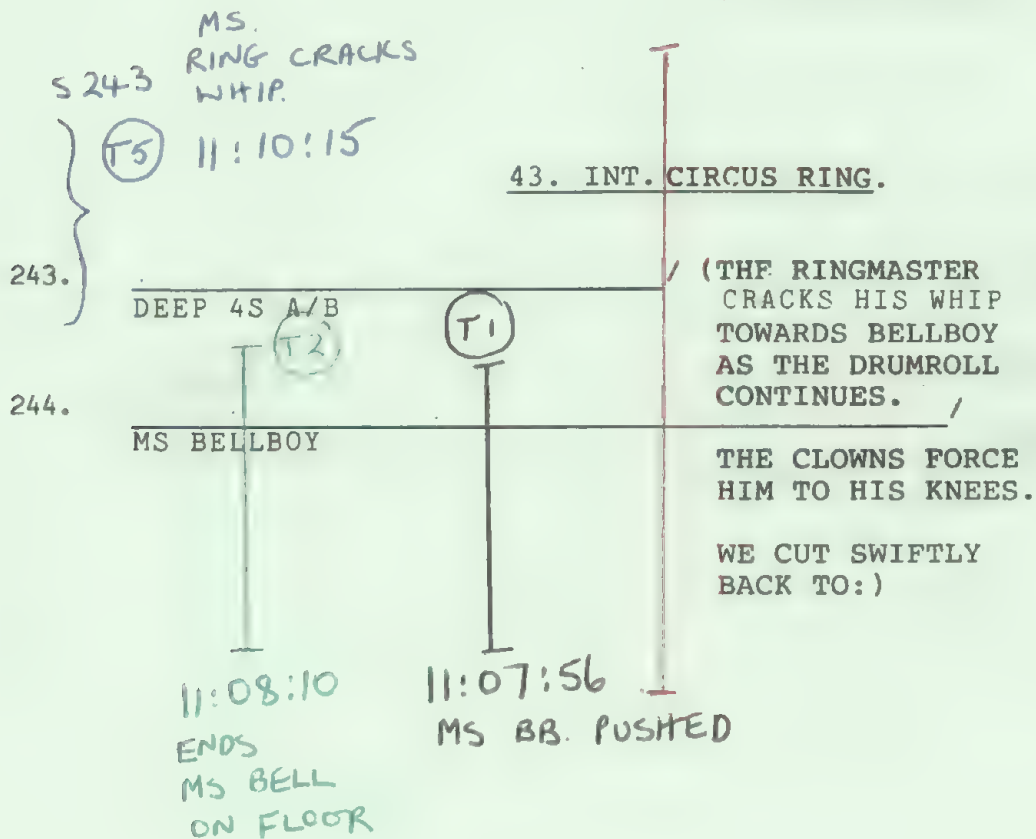 MS.
RING CRACKS
S 243 WHIP.
T5 11:10:15
43. INT. CIRCUS RING.
243.
DEEP 4S A/B
T2
T1
/ (THE RINGMASTER
CRACKS HIS WHIP
TOWARDS BELLBOY
AS THE DRUMROLL
CONTINUES. /
244.
MS BELLBOY
THE CLOWNS FORCE
HIM TO HIS KNEES.
WE CUT SWIFTLY
BACK TO:)
11:08:10
ENDS
MS BELL
ON FLOOR
11:07:56
MS BB. PUSHED